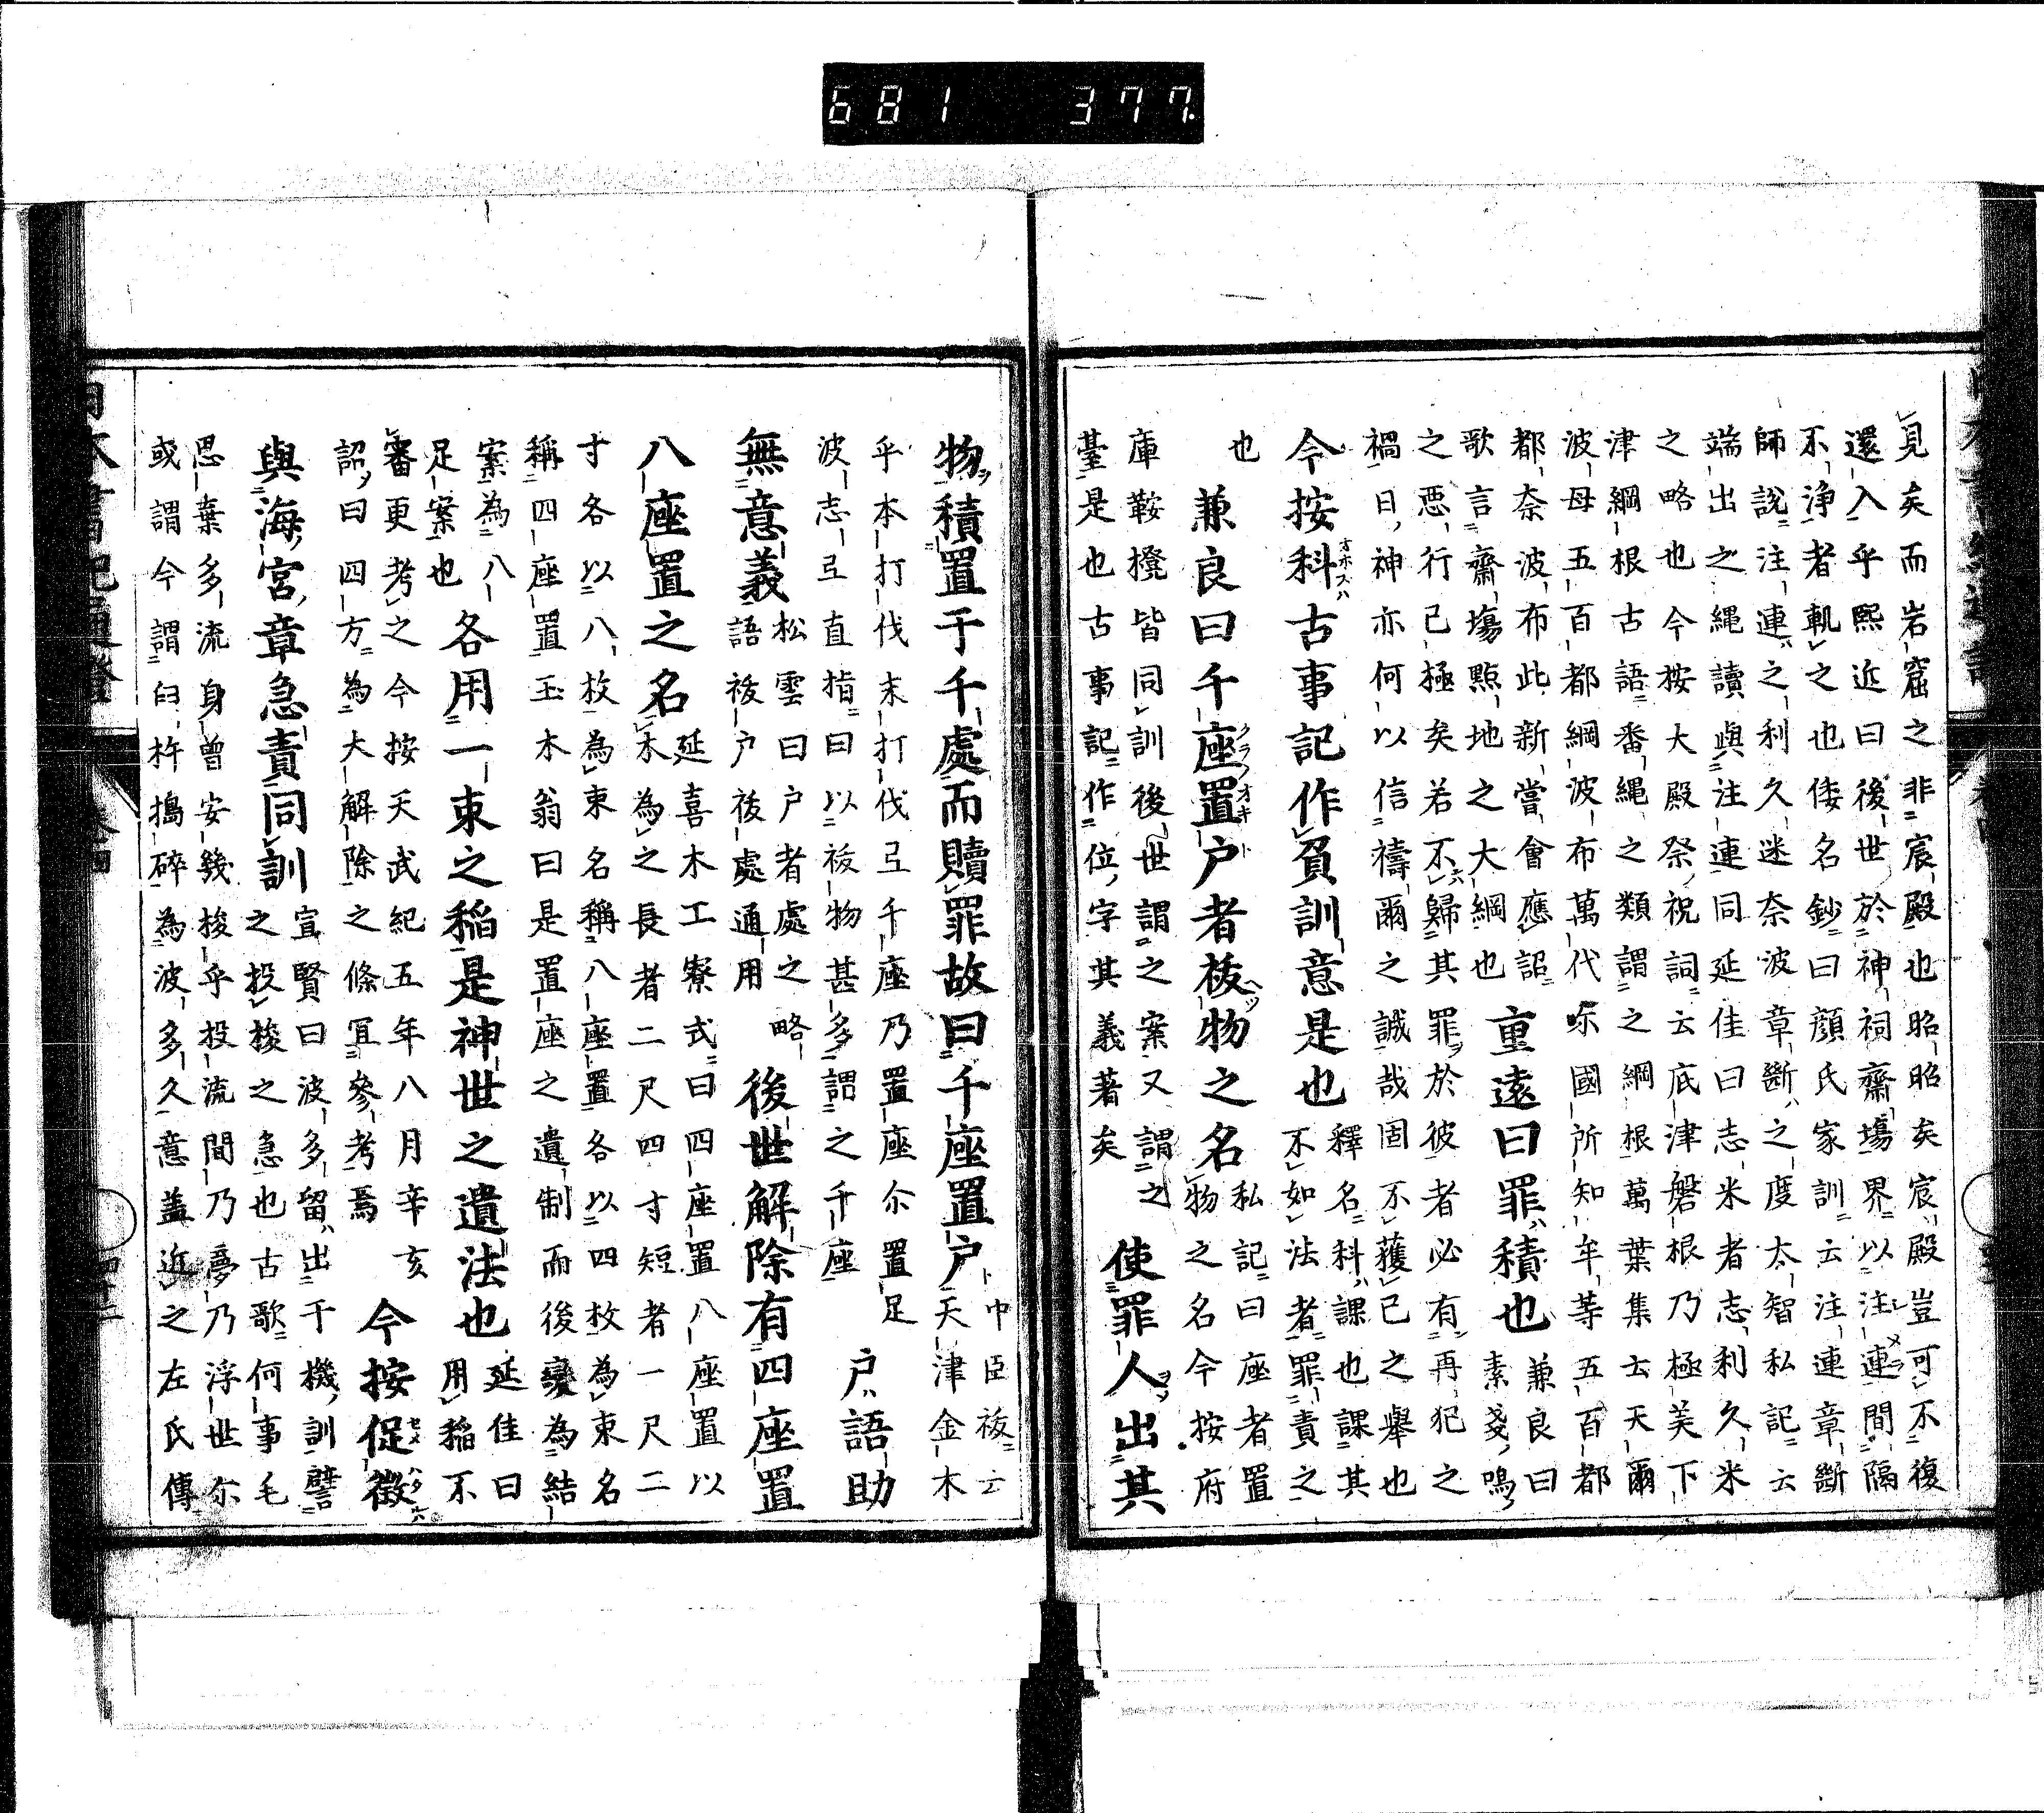 681 377
見矣而岩窟之非宸殿也昭昭矣宸殿豈可不復
還入乎熙近曰後世於神祠齋場界以注連間隔
不浄者軌之也倭名鈔曰顔氏家訓云注連章斷
師說注連之利久迷奈波章斷之度太智私記云
端出之縄讀與注連同延佳曰志米者志利久米
之略也今按大殿祭祝詞云底津磐根乃極美下
津綱根古語番繩之類謂之綱根萬葉集云天爾
波母五百都綱波布萬代尓國所知牟等五百都
都奈波布此新嘗會應詔
歌言齋場點地之大綱也
重遠曰罪積也
兼良曰
素戔嗚
之悪行已極矣若不歸其罪於彼者必有再犯之
禍日神亦何以信禱爾之誠哉固不獲已之舉也
今按科古事記作負訓意是也
釋名科課也課其
不如法者罪責之
也
兼良曰千座置戸者祓物之名
私記曰座者置
物之名今按府
庫鞍櫈皆同訓後世謂之案又謂之
臺是也古事記作位字其義著矣
使罪人出其
物積置于千處而贖罪故曰千座置戸
中臣祓云
天津金木
乎本打伐末打伐弖千座乃置座尓置足
波志弖直指曰以祓物甚多謂之千座
戸語助
無意義
松雲曰戸者處之略
語祓戸祓處通用
後世解除有四座置
八座置之名
延喜木工寮式曰四座置八座置以
木為之長者二尺四寸短者一尺二
寸各以八枚為束名稱八座置各以四枚為束名
稱四座置玉木翁曰是置座之遺制而後變為結
案為八
足案也
各用一束之稲是神世之遺法也
延佳曰
用稲不
審更考之今按天武紀五年八月辛亥
詔曰四方為大解除之條宜參考焉
今按促徴
與海宮章急責同訓
宣賢曰波多留出于機訓譬
之投梭之急也古歌何事毛
思棄多流身曾安幾梭乎投流間乃夢乃浮世尓
或謂今謂臼杵搗碎為波多久意蓋近之左氏傳